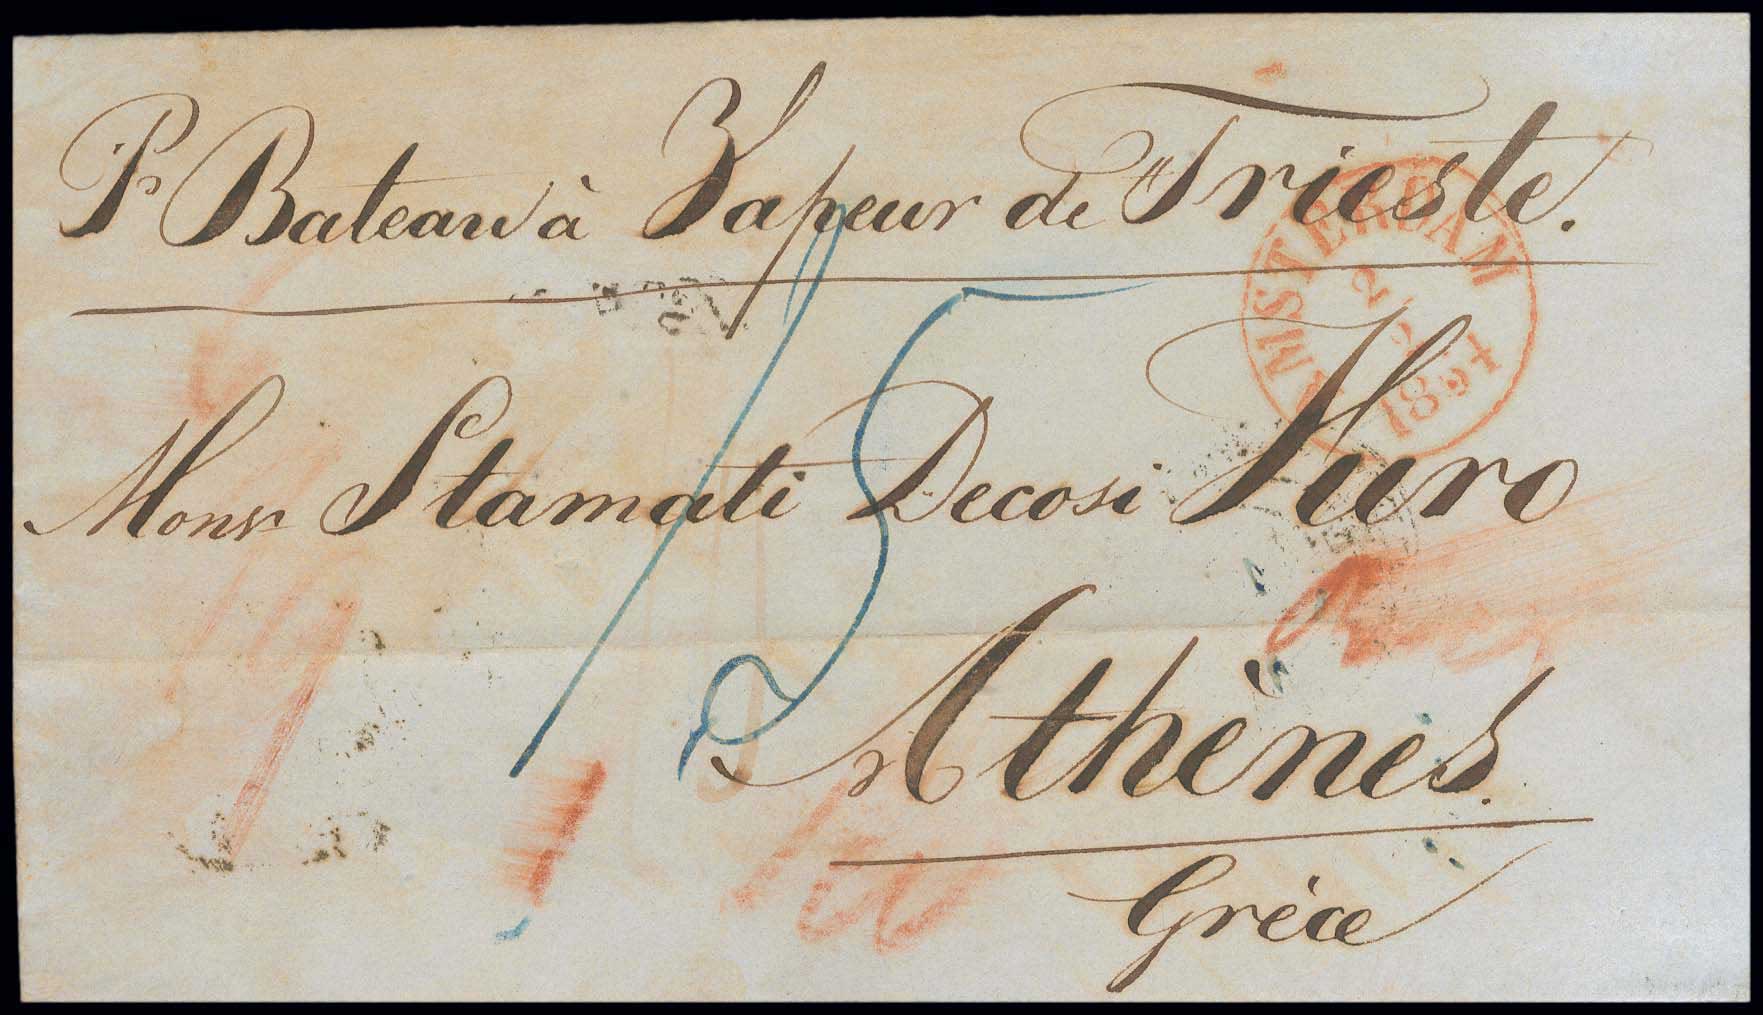 Pr Bateau à Vapeur de Trieste.
AMSTERDAM
2
2
1854
Monsr Stamati Decosi Furo
15
Athènes.
Grèce